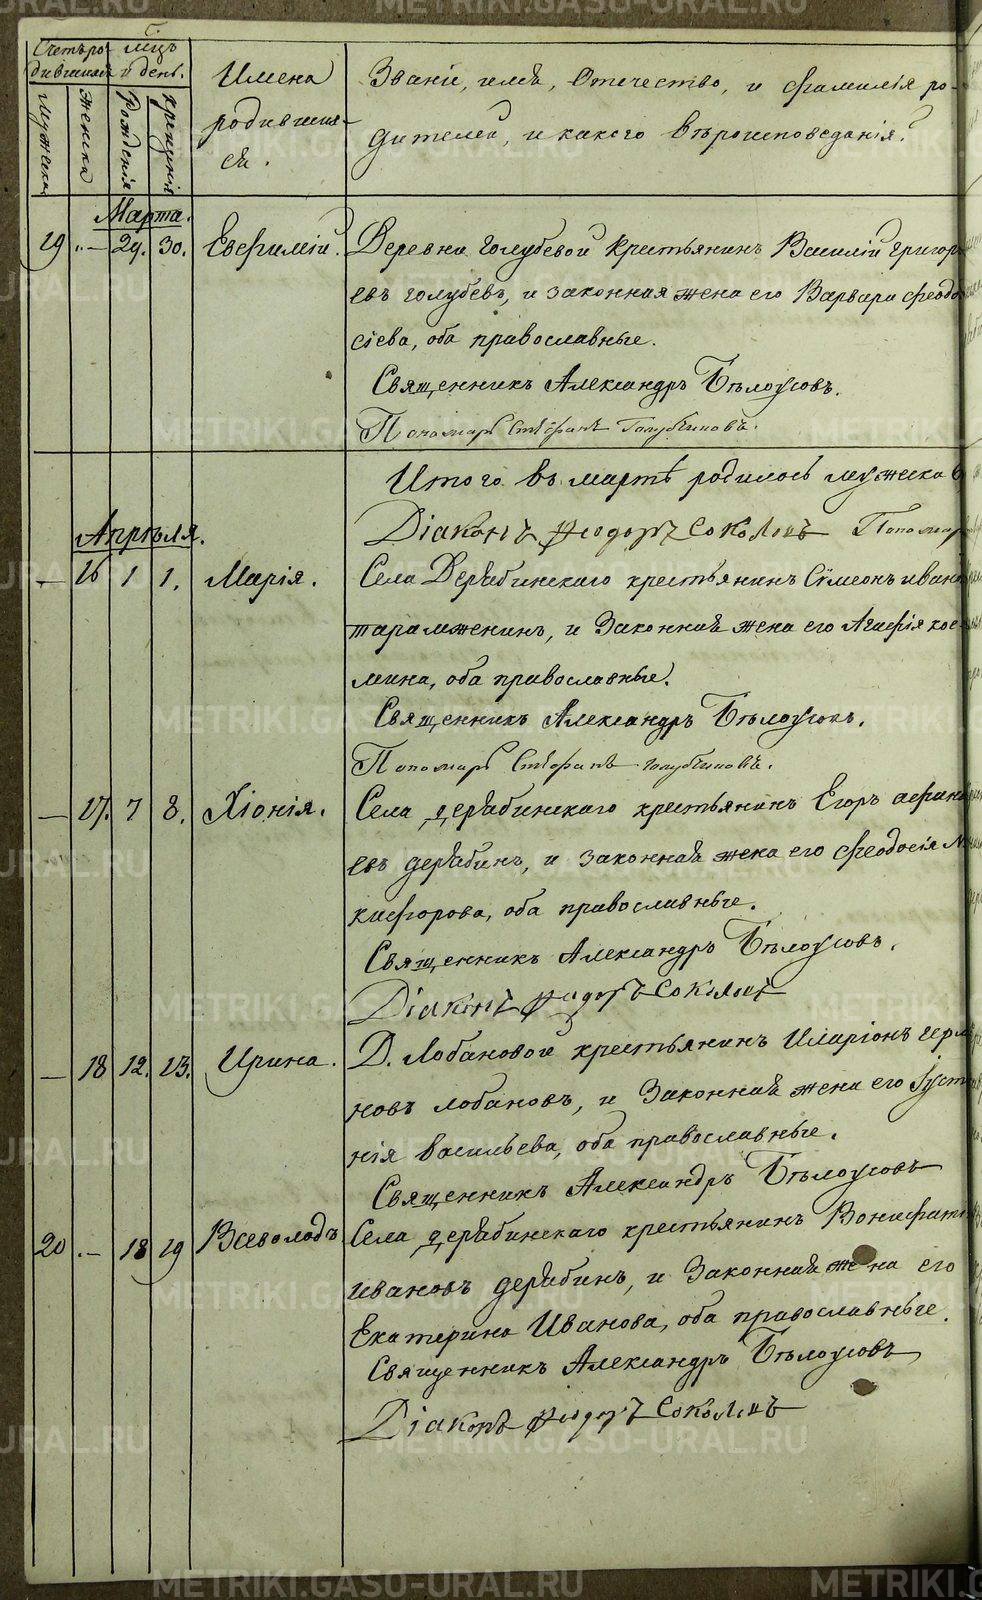 Счетъ ро- Мѣсяцъ
дившихся и день.
Мужеска
Женска
Рожденія
Крещенія
Имена
родивших-
ся.
Званіе, имя, Отечество, и фамилія ро-
дителей, и какого вѣроисповеданія.
Марта.
19 „ — 29. 30. Евфимій. Деревни Голубевой Крестьянинъ Василій Григорь
евъ голубевъ, и законная жена его Варвара феодо
сіева, оба православные.
Священникъ Александръ Бѣлоусовъ.
Пономарь Стефанъ Голубчиковъ.
Итого въ мартѣ родилось мужеска 6
Діаконъ Феодоръ Соколовъ Пономарь
Апрѣля.
— 16 1 1. Марія. Села Дерябинскаго крестьянинъ Сѵмеонъ иванов
тараженинъ, и Законная жена его Агафія кос
мина, оба православные.
Священникъ Александръ Бѣлоусовъ.
Пономарь Стефанъ Голубчиковъ.
— 17. 7 8. Хіонія. Села дерябинскаго крестьянинъ Егоръ афанась
евъ дерябинъ, и законная жена его феодосія Ни
кифорова, оба православные.
Священникъ Александръ Бѣлоусовъ.
Діаконъ Феодоръ Соколовъ
— 18 12. 13. Ирина. Д. Лобановой крестьянинъ Иларіонъ герма
новъ лобановъ, и Законная жена его Іусти
нія васильева, оба православные.
Священникъ Александръ Бѣлоусовъ
20 „ — 18 19 Всеволодъ Села дерябинскаго крестьянинъ Вонифатій
ивановъ дерябинъ, и Законная жена его
Екатерина Иванова, оба православные.
Священникъ Александръ Бѣлоусовъ
Діаконъ Феодоръ Соколовъ
METRIKI.GASO-URAL.RU